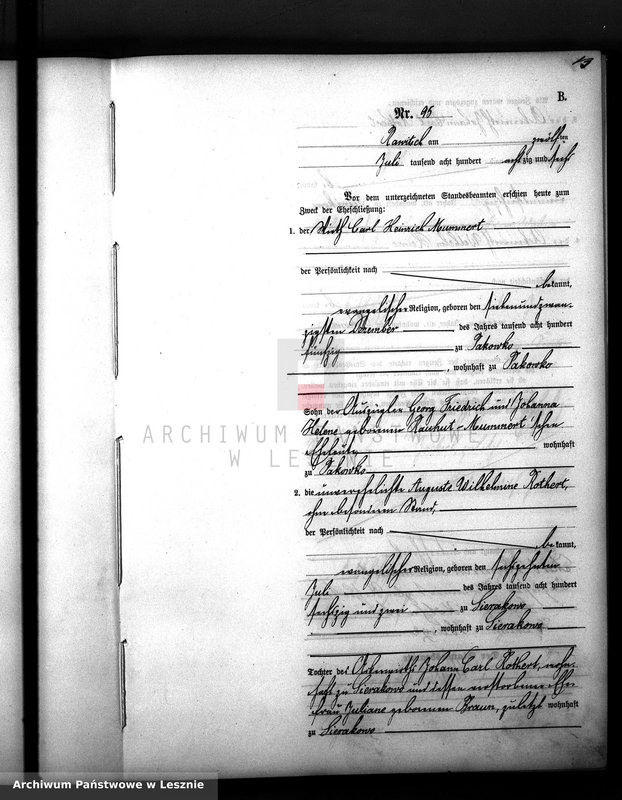 B.
Nr. 95
Rawitsch am zwölften
Juli tausend acht hundert achtzig und sechs
Vor dem unterzeichneten Standesbeamten erschien heute zum
Zweck der Eheschließung:
1. der Wirth Carl Heinrich Mummert
der Persönlichkeit nach
bekannt,
evangelischer Religion, geboren den siebenundzwan-
zigsten Dezember des Jahres tausend acht hundert
fünfzig zu Pakowko
, wohnhaft zu Pakowko
Sohn der Auszügler Georg Friedrich und Johanna
Helene geborenen Rauhut-Mummert'schen
Eheleute wohnhaft
zu Pakowko
2. die unverehelichte Auguste Wilhelmine Rothert,
ohne besonderen Stand,
der Persönlichkeit nach
bekannt,
evangelischer Religion, geboren den sechszehnten
Juli des Jahres tausend acht hundert
sechszig und zwei zu Sierakowo
, wohnhaft zu Sierakowo
Tochter des Johann Carl Rothert, wohn-
haft zu Sierakowo und dessen verstorbene Ehe-
frau Juliane geborenen Braun, zuletzt wohnhaft
zu Sierakowo
ARCHIWUM PAŃSTWOWE
W LESZNIE
Archiwum Państwowe w Lesznie